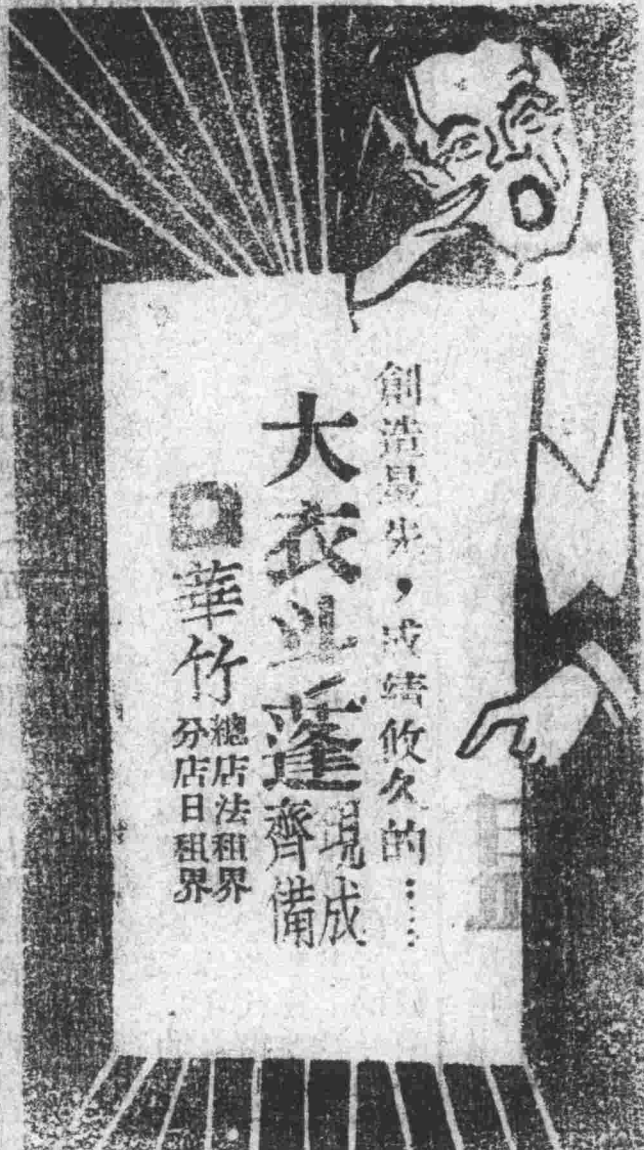 創造最先，成績攸久的……
大衣斗蓬
現成
齊備
華竹
總店法租界
分店日租界